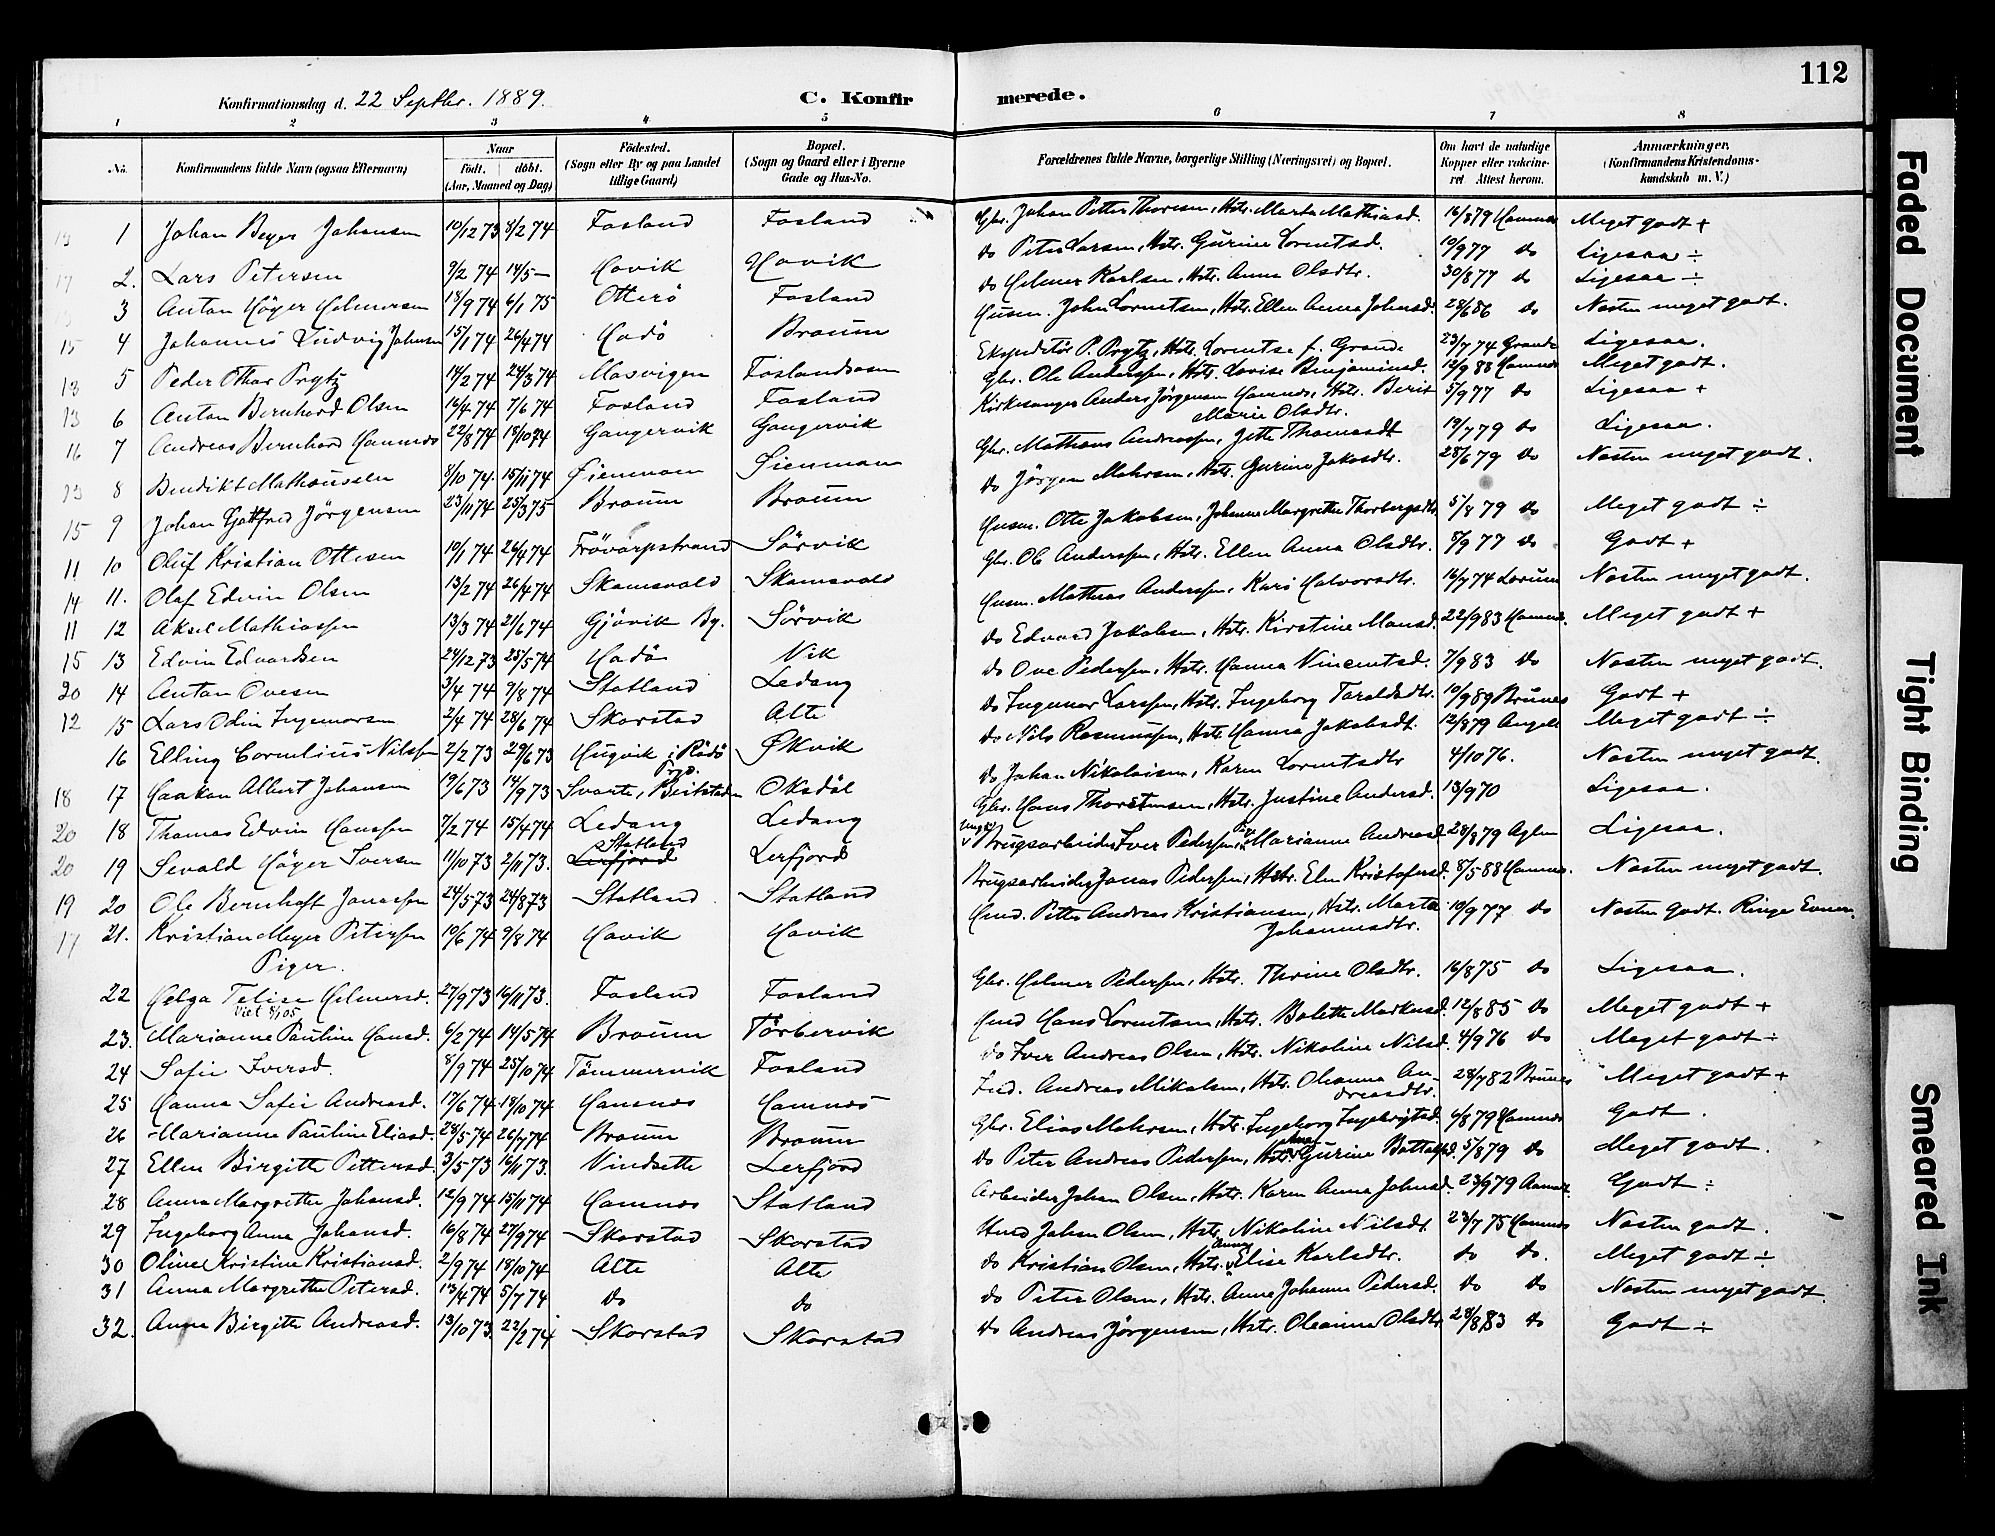 112
Konfirmationsdag d. 22 Septbr. 1889.
C. Konfir
merede.
1 2 3 4 5 6 7 8
No.
Konfirmandens fulde Navn (ogsaa Efternavn)
Naar
födt. döbt.
(Aar, Maaned og Dag)
Födested.
(Sogn eller By og paa Landet
tillige Gaard)
Bopæl.
(Sogn og Gaard eller i Byerne
Gade og Hus-No.
Forældrenes fulde Navne, borgerlige Stilling (Næringsvei) og Bopæl.
Om havt de naturlige
Kopper eller vaccine-
ret Attest herom.
Anmærkninger.
(Konfirmandens Kristendoms-
kundskab m. V.)
1 Johan Beyer Johansen 10/12 73 8/2 74 Fosland Fosland Gbr. Johan Petter Thoresen, Hstr. Marta Mathiasd. 16/8 79 Hamnes Meget godt +
2. Lars Petersen 9/2 74 14/5 — Hovik Hovik do Peter Larsen, Hstr. Gurine Lorentsd. 10/9 77 do Ligesaa ÷
3 Anton Höyer Helmersen 18/9 74 6/1 75 Otterö Fosland do Helmer Karlsen, Hstr. Anna Olsdtr. 30/8 77 do Ligesaa ÷
15 4 Johannes Ludvig Johnsen 15/1 74 26/4 74 Hadö Braum Husm. John Lorentsen, Hstr. Ellen Anna Johnsd. 28/6 86 do Næsten meget godt.
13 5 Peder Othar Prytz 14/2 74 24/3 74 Masvigen Foslandsosen Ekspeditör P. Prytz, Hstr. Lorentse f. Grande 23/7 74 Grande Ligesaa.
13 6 Anton Bernhard Olsen 16/4 74 7/6 74 Fosland Fosland Gbr. Ole Anderssen, Hstr. Lovise Benjaminsd. 12/9 88 Hamnes Meget godt.
16 7 Andreas Bernhard Hamnes 22/8 74 18/10 74 Gangervik Gangervik Kirkesanger Anders Jörgensen Hamnes, Hstr. Berit
Marie Olsdtr. 5/9 77 do Ligesaa +
13 8 Bendikt Mathæussen 8/10 74. 15/11 74 Öienmoen Öienmoen Gbr. Mathæus Andreassen, Jette Thomasdt 19/7 79 do Ligesaa.
15 9 Johan Gotfred Jörgensen 23/11 74 25/3 75 Braum Braum do Jörgen Mohrsen, Hstr. Gurine Jakobsdtr. 28/6 79 do Næsten meget godt.
11 10 Oluf Kristian Ottesen 19/1 74 26/4 74 Frövarpstrand Sörvik Husm. Otte Jakobsen, Johanna Margrethe Thorbergsdtr 5/8 79 do Meget godt ÷
14 11. Olaf Edvin Olsen 13/2 74 26/4 74 Skamsvold Skamsvold Gbr. Ole Anderssen, Hstr. Ellen Anna Olsdtr. 8/9 77 do Godt +
11 12 Aksel Mathiassen 13/3 74 21/6 74 Gjövik By. Sörvik Husm. Mathias Anderssen, Kari Halvorsdtr. 16/7 74 Næsten meget godt.
15 13 Edvin Edvardsen 24/12 73 25/5 74 Hadö Vik do Edvard Jakobsen, Hstr. Kirstine Monsd. 22/9 83 Hamnes. Meget godt +
20 14 Anton Ovesen 3/4 74 9/8 74 Statland Ledang do Ove Pedersen, Hstr. Hanna Vincentsd. 7/9 83 do Næsten meget godt.
12 15 Lars Odin Ingemarsen 2/4 74 28/6 74 Skorstad Alte do Ingemar Larssen, Hstr. Ingeborg Taraldsdtr. 10/9 89 Brunes Godt +
16 Elling Cornelius Nilssen 2/2 73 29/6 73 Hugvik i Rödö
Prgd. Ökvik do Nils Rasmussen, Hstr. Hanna Jakobsdt. 12/8 79 Meget godt ÷
18 17 Haakon Albert Johansen 19/6 73 14/9 73 Svarte, Beitstaden Oksdöl do Johan Nikolaisen, Karen Lorentsdtr 4/10 76. Næsten meget godt.
20 18 Thomas Edvin Hanssen 7/2 74 15/4 74 Ledang Ledang Gbr. Hans Thorstensen, Hstr. Justine Andersd. 13/9 70 Ligesaa.
20 19 Sevald Höyer Iversen 11/10 73 2/11 73. Statland
Lerfjord Lerfjord Brugsarbeider Iver Pedersen, Marianne Andreasd. 28/8 79 Ligesaa.
19 20 Ole Bernhoft Jonassen 24/5 73 24/8 73 Statland Statland Brugsarbeider Jonas Pedersen, Hstr. Elen Kristofersd. 8/5 88 Hamnes. Næsten meget godt.
17 21. Kristian Meyer Petersen 10/6 74 9/8 74 Hovik Hovik Hmd. Petter Andreas Kristiansen, Hstr. Marta
Johannesdtr. 10/9 77 do Næsten godt. Ringe Evner.
Piger.
22 Helga Telise Helmersd. 27/9 73 16/11 73. Fosland Fosland Gbr. Helmer Pedersen, Hstr. Thrine Olsdtr. 16/8 75 do Ligesaa.
Viet 8/1 05
23. Marianne Pauline Hansd. 6/2 74 14/5 74 Braum Törbervik Hmd Hans Lorentsen, Hstr. Bolette Markusd. 12/8 85 do Meget godt +
24 Sofie Iversd. 8/9 74 25/10 74 Tömmervik Fosland do Iver Andreas Olsen, Hstr. Nikoline Nilsd. 4/9 76 do Meget godt ÷
25 Hanna Sofie Andreasd. 17/6 74 18/10 74 Hamnes Hamnes Ind. Andreas Mikalsen, Hstr. Oleanna An-
dreasdtr. 28/7 82 Brunes Meget godt +
26 Marianne Pauline Eliasd. 28/5 74 26/7 74 Braum Braum Gbr. Elias Mohrsen, Hstr. Ingeborg Ingebrigtsd. 6/8 79 Hamnes Godt.
27 Ellen Birgitte Pettersd. 3/5 73 16/11 73. Vindsette Lerfjord do Peter Andreas Pedersen, Hstr. Gurine 5/8 79 do Meget godt.
28 Anna Margrethe Johansd. 12/9 74 15/11 74 Hamnes Statland Arbeider Johan Olsen, Hstr. Karen Anna Johnsd. 23/9 79 Godt ÷
29 Ingeborg Anna Johansd. 16/8 74 27/9 74 Skorstad Skorstad Hmd Johan Olsen, Hstr. Nikoline Nilsdt. 23/7 75 Hamnes Næsten godt.
30 Oline Kristine Kristiansd. 2/9 74 18/10 74 Alte Alte do Kristian Olsen, Hstr. Anna Elise Karlsdtr. do do. Meget godt ÷
31 Anna Margrethe Petersd. 13/4 74 5/7 74 do do do Peter Olsen, Hstr. Anna Johanna Pedersd. do do Næsten meget godt.
32. Anna Birgitte Andreasd. 13/10 73. 22/2 74 Skorstad Skorstad do Andreas Jörgensen, Hstr. Oleanna Olsdtr 28/8 83 do Godt ÷
Faded Document
Tight Binding
Smeared Ink